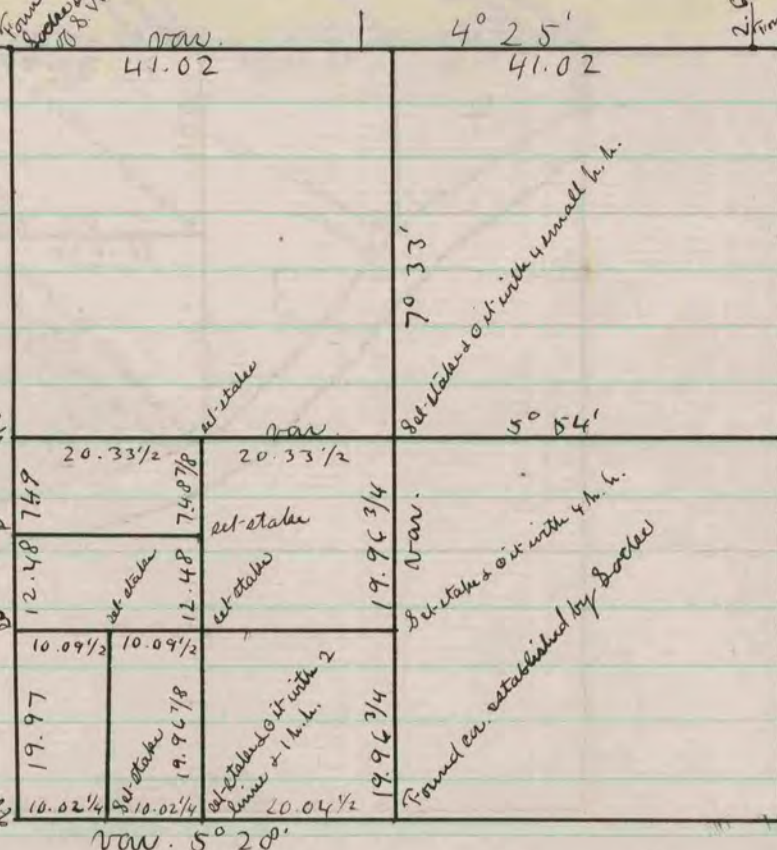 Found
Socke
of S.
var. 4° 25'
41.02 41.02
7° 33'
Set-stake & ⊙ it with 4 small h. h.
set-stake
var. 5° 54'
20.33 1/2 20.33 1/2
7.49 7.48 7/8
set-stake
var.
12.48 12.48
set stake
set stake
19.96 3/4
Set stake & ⊙ it with 4 h. h.
10.09 1/2 10.09 1/2
19.97 19.96 7/8
Set-stake
set-stake & ⊙ it with 2
& 1 h. h.
19.96 3/4
Found cor. established by Socke
10.02 1/4 10.02 1/4 20.04 1/2
var. 5° 20'